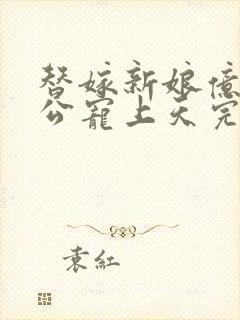 替嫁新娘億
公寵上天完
袁紅